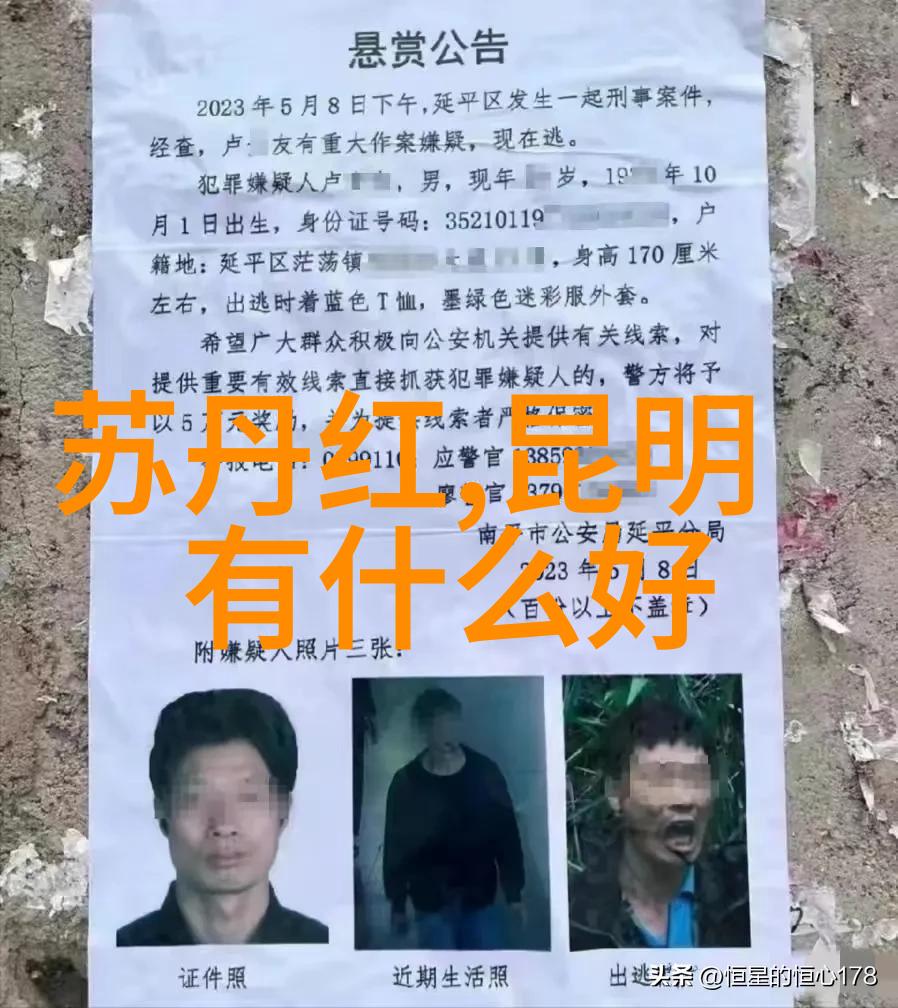 悬赏公告
2023年5月8日下午，延平区发生一起刑事案件，
经查，卢 友有重大作案嫌疑，现在逃。
犯罪嫌疑人卢 ，男，现年 岁，19 年10
月1日出生，身份证号码：35210119 ，户
籍地：延平区茫荡镇 ，身高170厘米
左右，出逃时着蓝色T恤，墨绿色迷彩服外套。
希望广大群众积极向公安机关提供有关线索，对
提供重要有效线索直接抓获犯罪嫌疑人的，警方将予
以5万元奖 ， 为提 线索者严格保密
苏丹红,昆明
有什么好
报电 ：0 99110 应警官 1385
警官 379
南 市公安局延平分局
2023年5月8日
（百 以 不盖章）
附嫌疑人照片三张：
证件照
近期生活照
出逃
头条 @恒星的恒心178